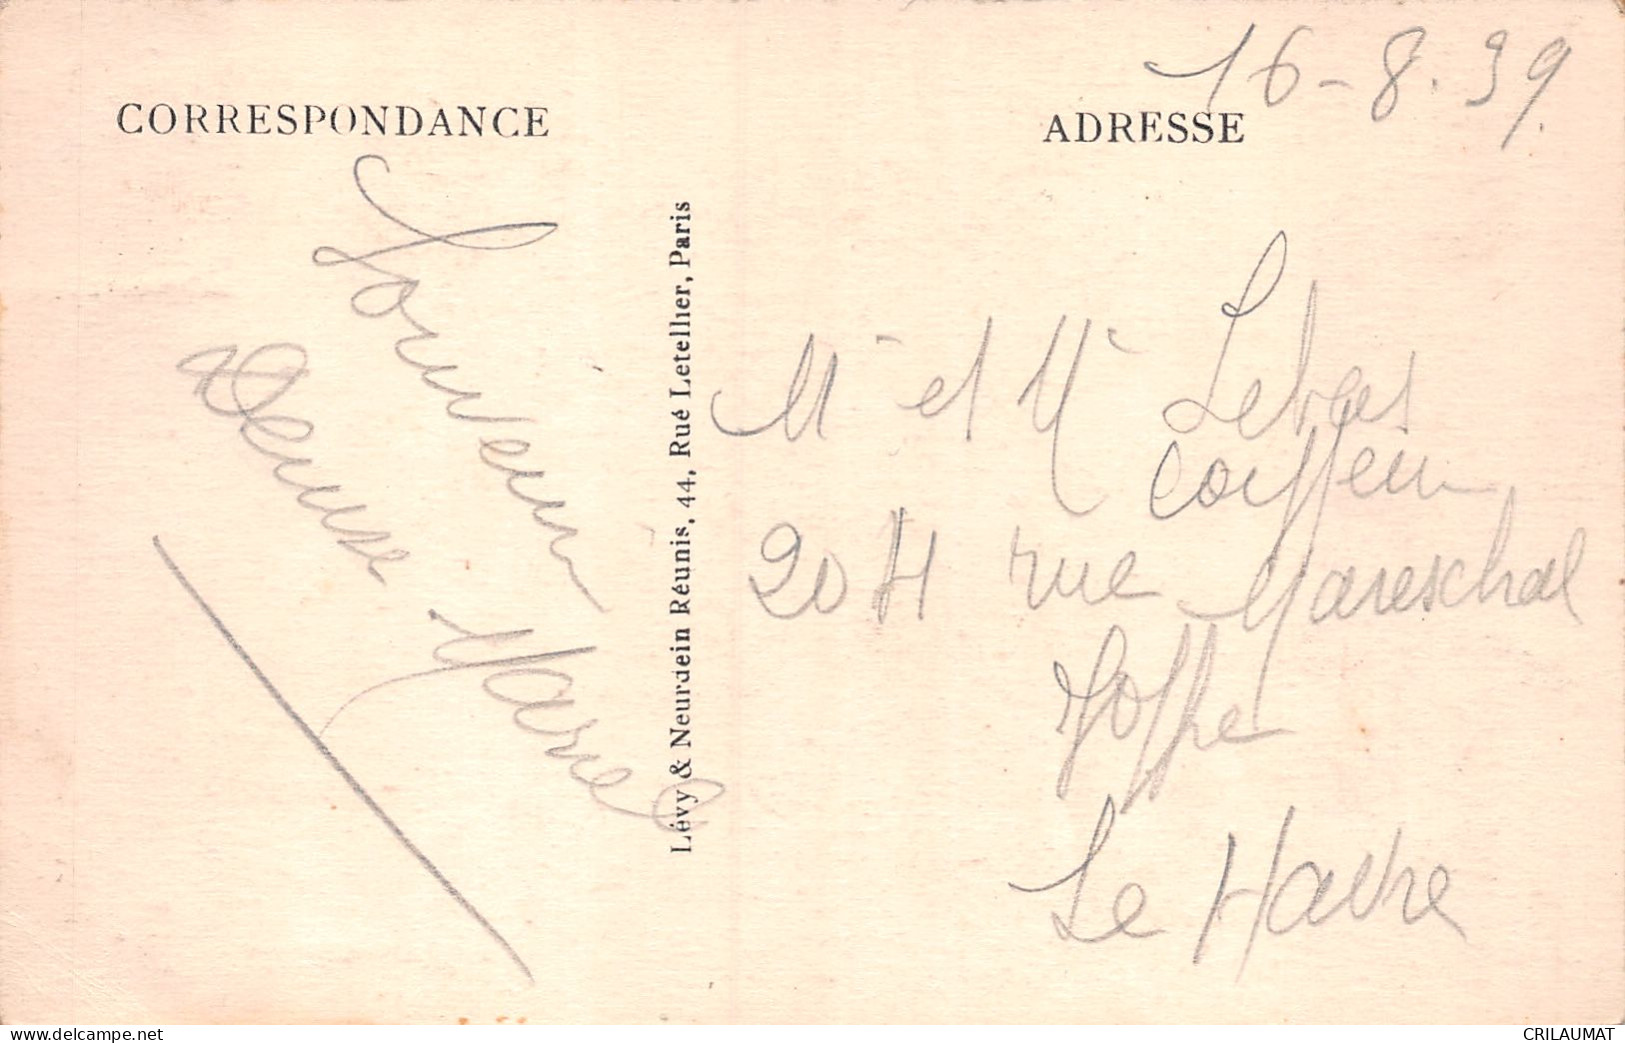 16-8.39.
CORRESPONDANCE
ADRESSE
Souvenir
Denise Marcel
Lévy & Neurdein Réunis, 44, Rue Letellier, Paris
Mr et Me Lebas
Coiffeur
204 rue Mareschal
Joffre
Le Havre
www.delcampe.net
CRILAUMAT